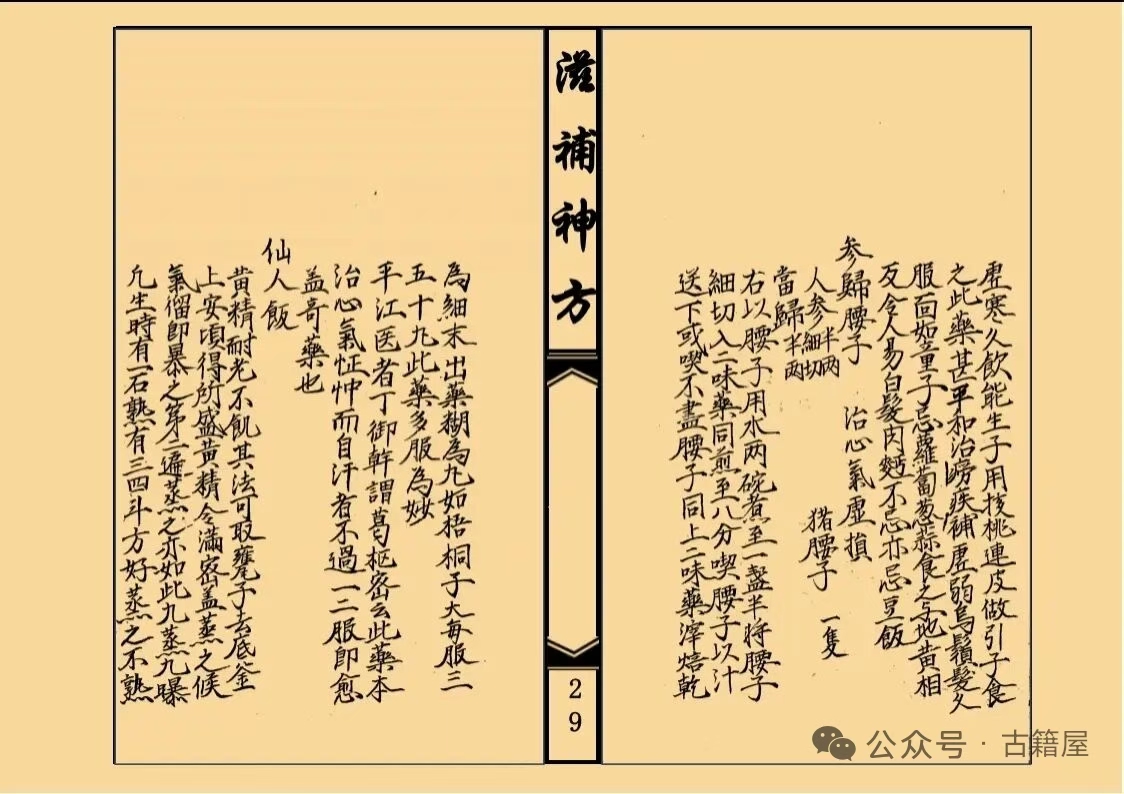 虛寒久飲能生子用核桃連皮做引子食
之此藥甚平和治癆疾補虛弱烏鬚髮久
服面如童子忌蘿蔔葱蒜食之与地黄相
反令人易白髮肉麪不忌亦忌豆飯
参歸腰子 治心氣虛損
人参半两細切 猪腰子一隻
當歸半两
右以腰子用水两碗煮至一盞半将腰子
細切入二味藥同煎至八分喫腰子以汁
送下或喫不盡腰子同上二味藥滓焙乾
滋補神方
29
為細末出藥糊為九如梧桐子大每服三
五十九此藥多服為妙
平江医者丁御幹謂葛枢密云此藥本
治心氣怔忡而自汗者不過一二服即愈
盖奇藥也
仙人飯
黄精耐老不飢其法可取甕子去底釜
上安頃得所盛黄精令滿密盖蒸之候
氣溜即暴之第二遍蒸之亦如此九蒸九曝
凣生時有一石熟有三四斗方好蒸之不熟
公众号·古籍屋